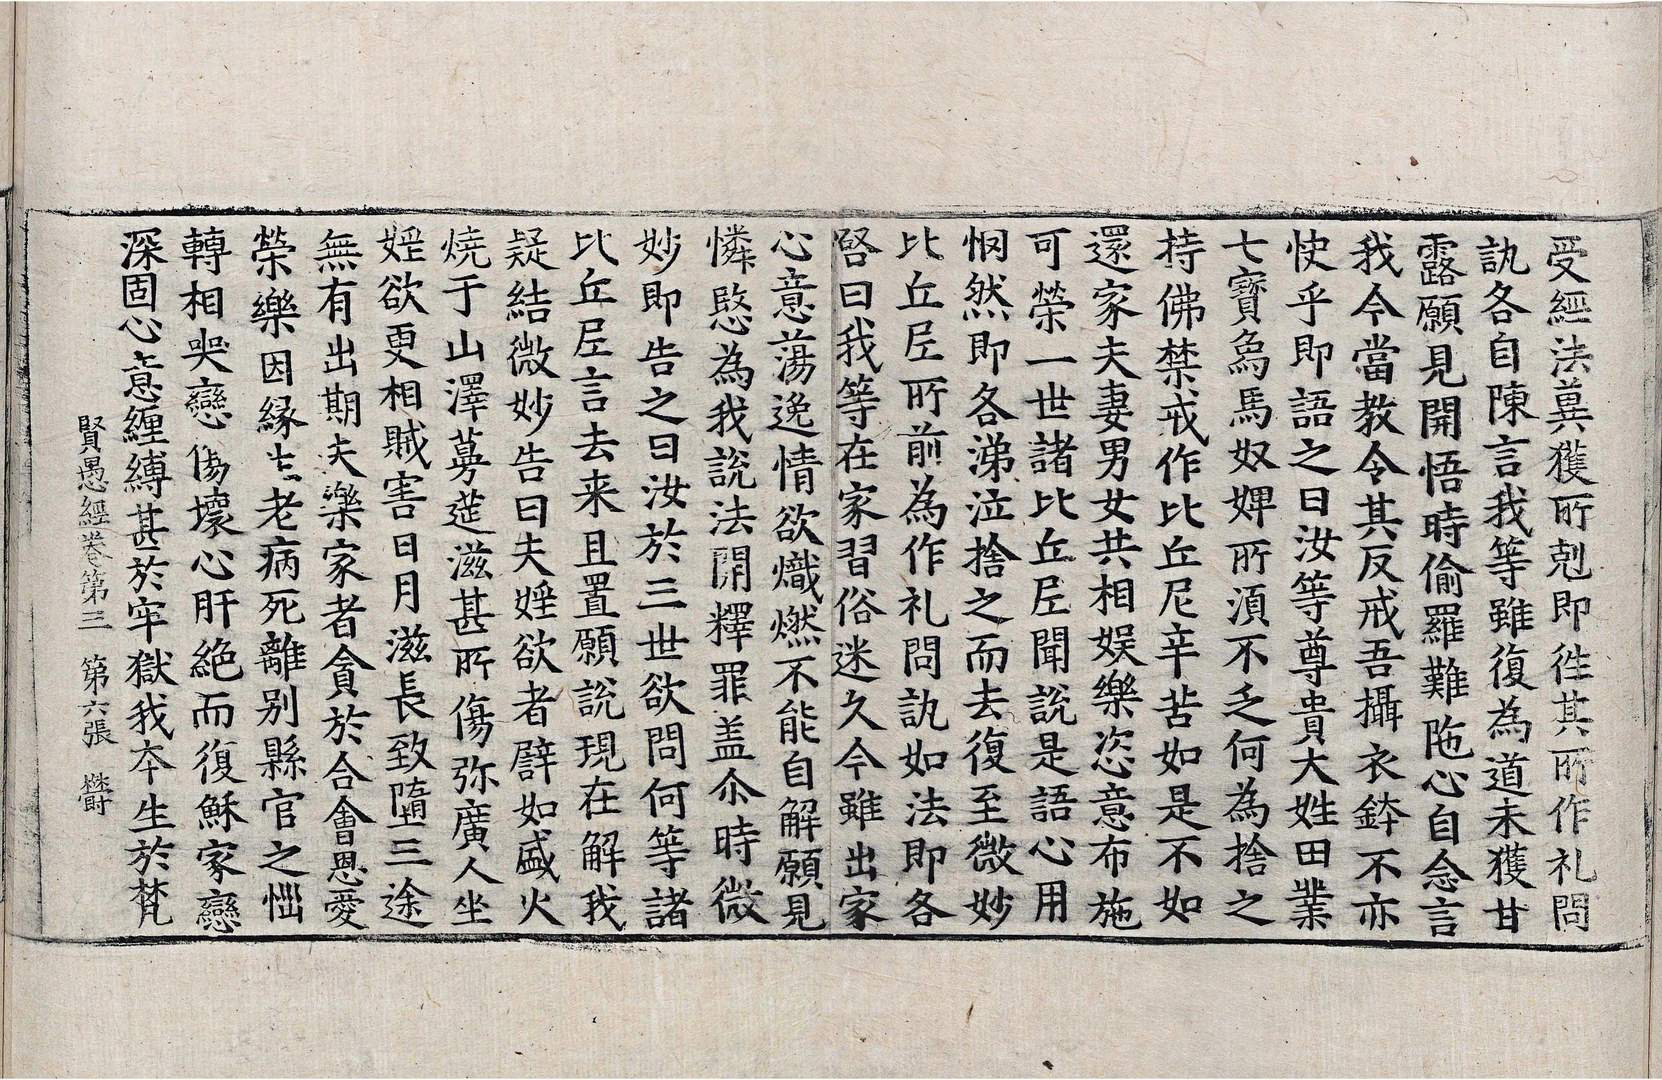 受經法冀獲所剋即徃其所作礼問
訊各自陳言我等雖復為道未獲甘
露願見開悟時偷羅難陁心自念言
我今當教令其反戒吾攝衣鉢不亦
快乎即語之曰汝等尊貴大姓田業
七寶為馬奴婢所須不乏何為捨之
持佛禁戒作比丘尼辛苦如是不如
還家夫妻男女共相娛樂恣意布施
可榮一世諸比丘𡰱聞說是語心用
惘然即各涕泣捨之而去復至微妙
比丘𡰱所前為作礼問訊如法即各
啓曰我等在家習俗迷久今雖出家
心意蕩逸情欲熾燃不能自解願見
憐愍為我說法開釋罪盖尒時微
妙即告之曰汝於三世欲問何等諸
比丘𡰱言去来且置願說現在解我
疑結微妙告曰夫婬欲者譬如盛火
燒于山澤蔓莚滋甚所傷弥廣人坐
婬欲更相賊害日月滋長致墮三途
無有出期夫樂家者貪於合會恩愛
榮樂因縁生老病死離别縣官之惱
轉相哭戀傷壞心肝絶而復穌家戀
深固心意纏縛甚於牢獄我夲生於梵
賢愚經卷第三　第六張　欝